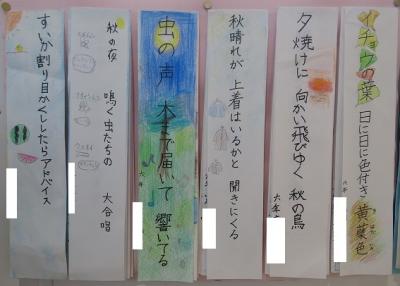 イチョウの葉 日に日に色付き 黄葉色
六年
夕焼けに 向かい飛びゆく 秋の鳥
六年
秋晴れが 上着はいるかと 聞きにくる
六年
虫の声 木まで届いて 響いてる
六年
秋の夜 鳴く虫たちの 大合唱
すいか割り目かくししたらアドバイス